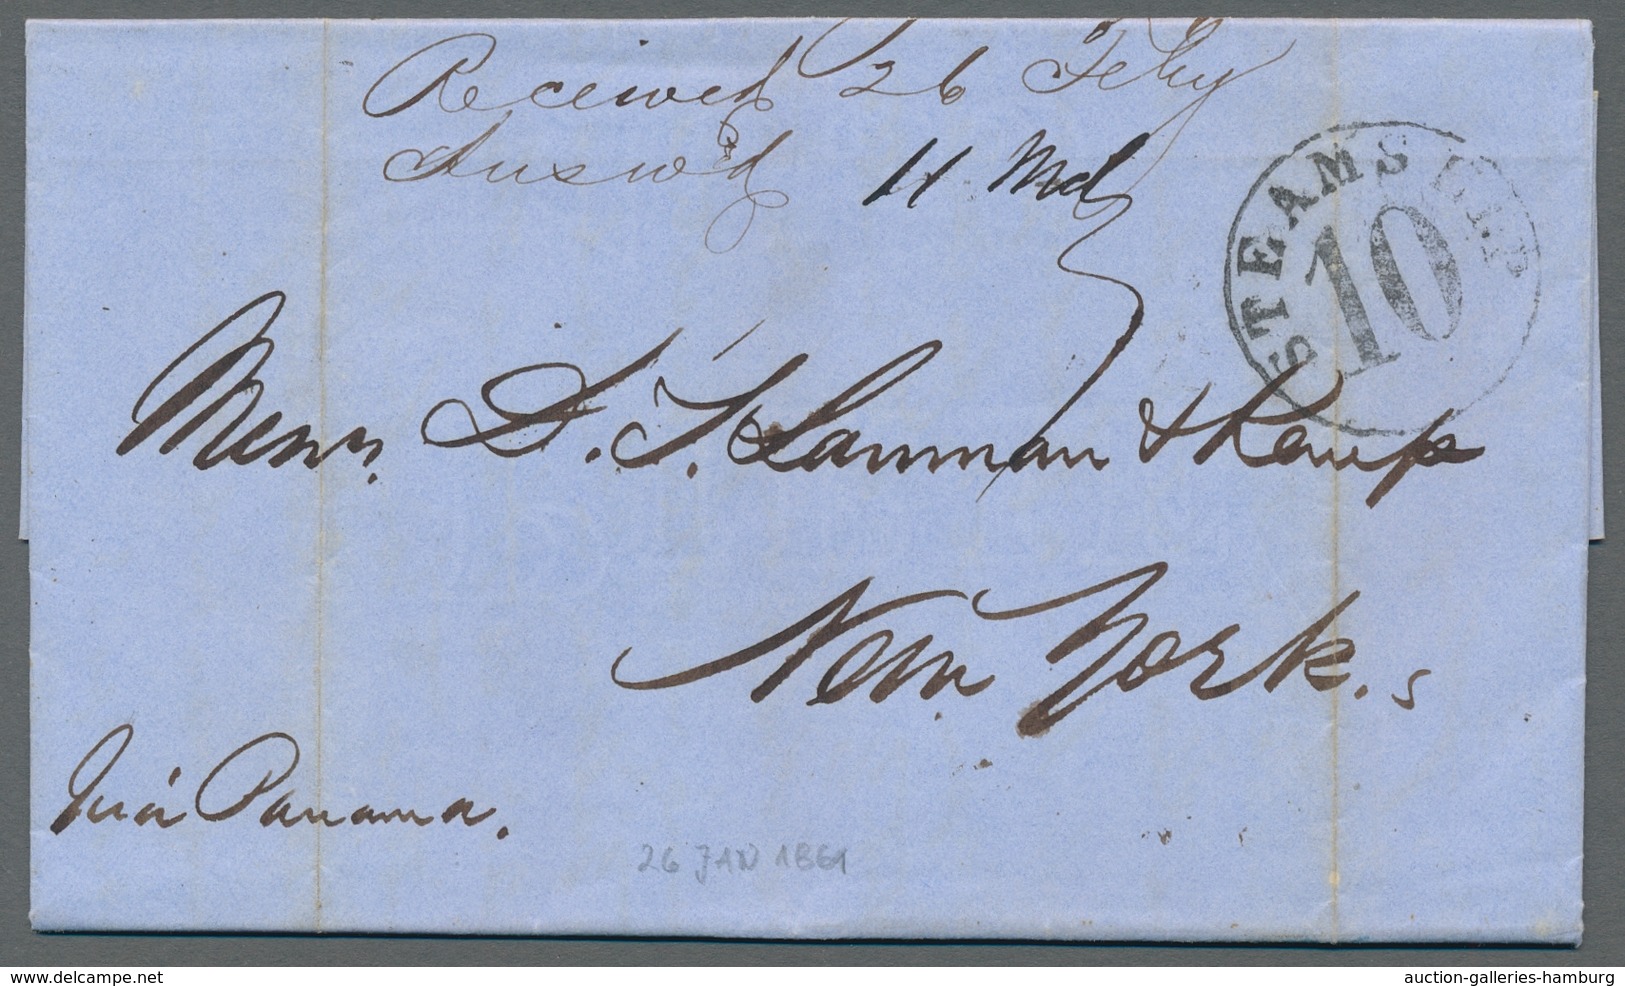 Received 26 Feby
Answd 11 Md
STEAMSHIP
10
Messrs. D. T. Lanman & Kemp
New York.
Viá Panama.
26 JAN 1861
www.delcampe.net
auction-galleries-hamburg